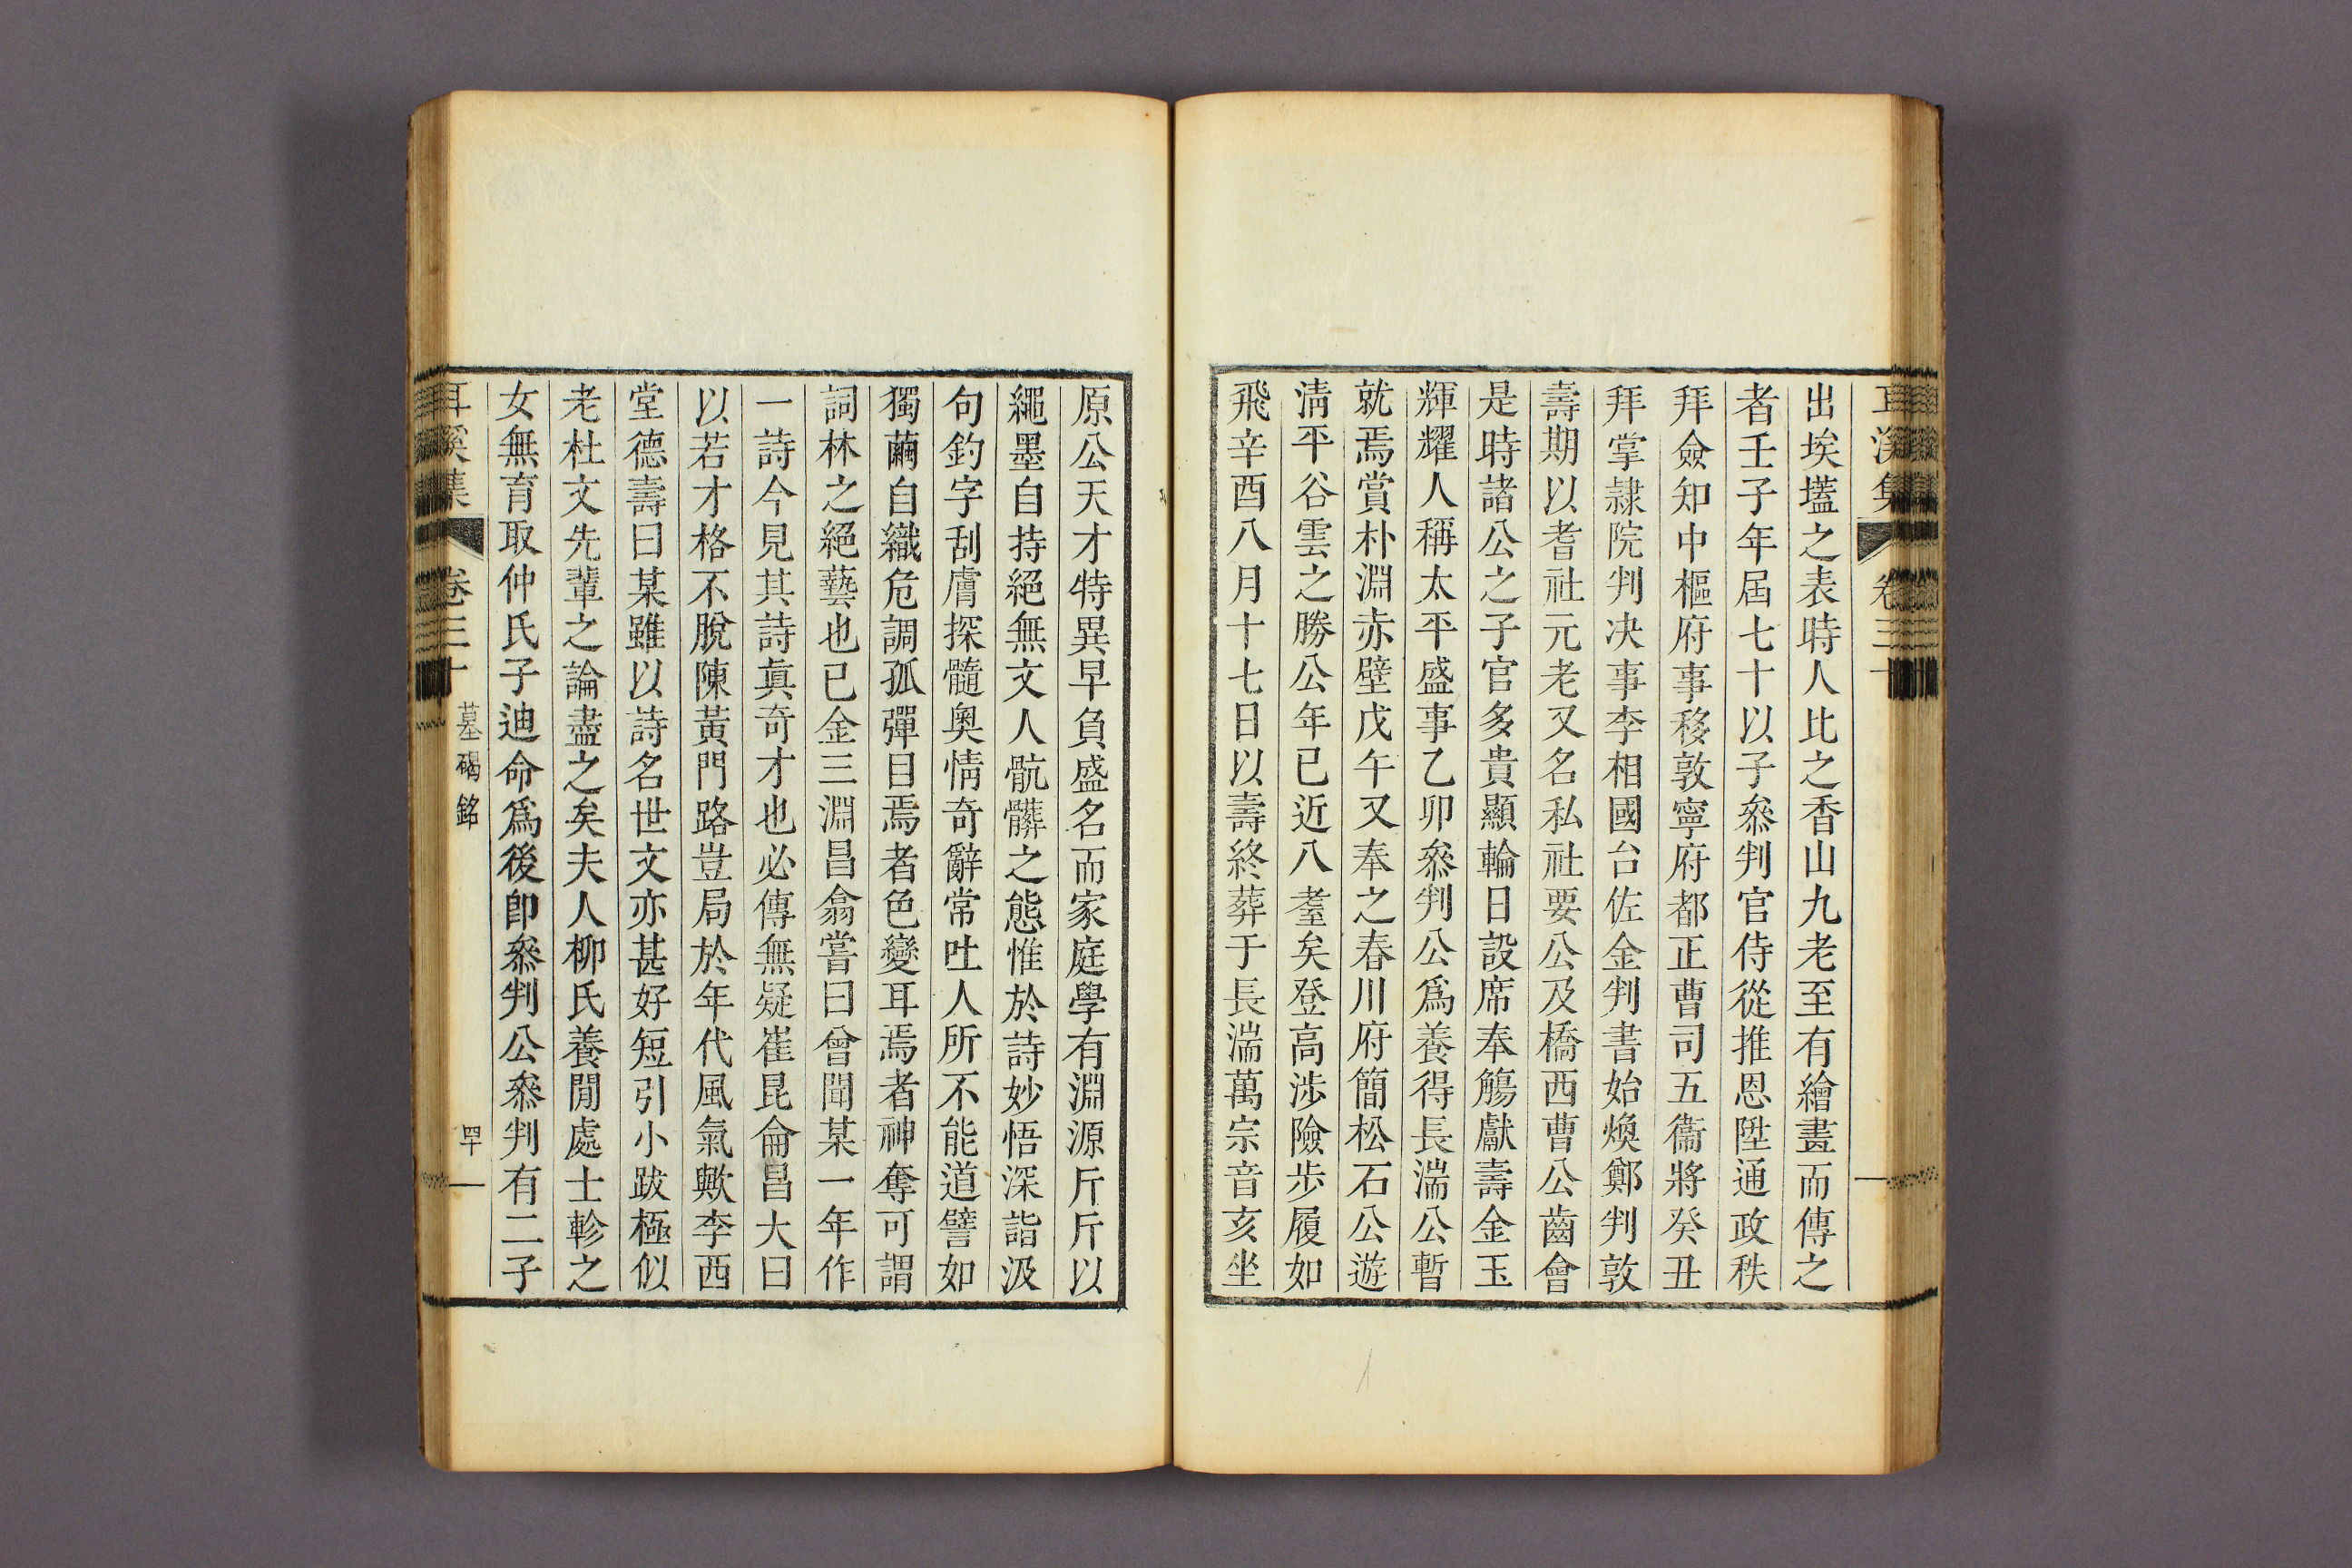 耳溪集 卷三十
出埃壒之表時人比之香山九老至有繪畫而傳之
者壬子年屆七十以子叅判官侍從推恩陞通政秩
拜僉知中樞府事移敦寧府都正曹司五衞將癸丑
拜掌隷院判决事李相國台佐金判書始煥鄭判敦
壽期以耆社元老又名私社要公及橋西曹公齒會
是時諸公之子官多貴顯輪日設席奉觴獻壽金玉
輝耀人稱太平盛事乙卯叅判公爲養得長湍公暫
就焉賞朴淵赤壁戊午又奉之春川府簡松石公遊
淸平谷雲之勝公年已近八耋矣登高涉險步履如
飛辛酉八月十七日以壽終葬于長湍萬宗音亥坐
原公天才特異早負盛名而家庭學有淵源斤斤以
繩墨自持絕無文人骯髒之態惟於詩妙悟深詣汲
句釣字刮膚探髓奧情奇辭常吐人所不能道譬如
獨繭自織危調孤彈目焉者色變耳焉者神奪可謂
詞林之絕藝也已金三淵昌翕嘗曰曾聞某一年作
一詩今見其詩眞奇才也必傳無疑崔昆侖昌大曰
以若才格不脫陳黃門路豈局於年代風氣歟李西
堂德壽曰某雖以詩名世文亦甚好短引小跋極似
老杜文先輩之論盡之矣夫人柳氏養閒處士軫之
女無育取仲氏子迪命爲後卽叅判公叅判有二子
耳溪集 卷三十 墓碣銘 罕